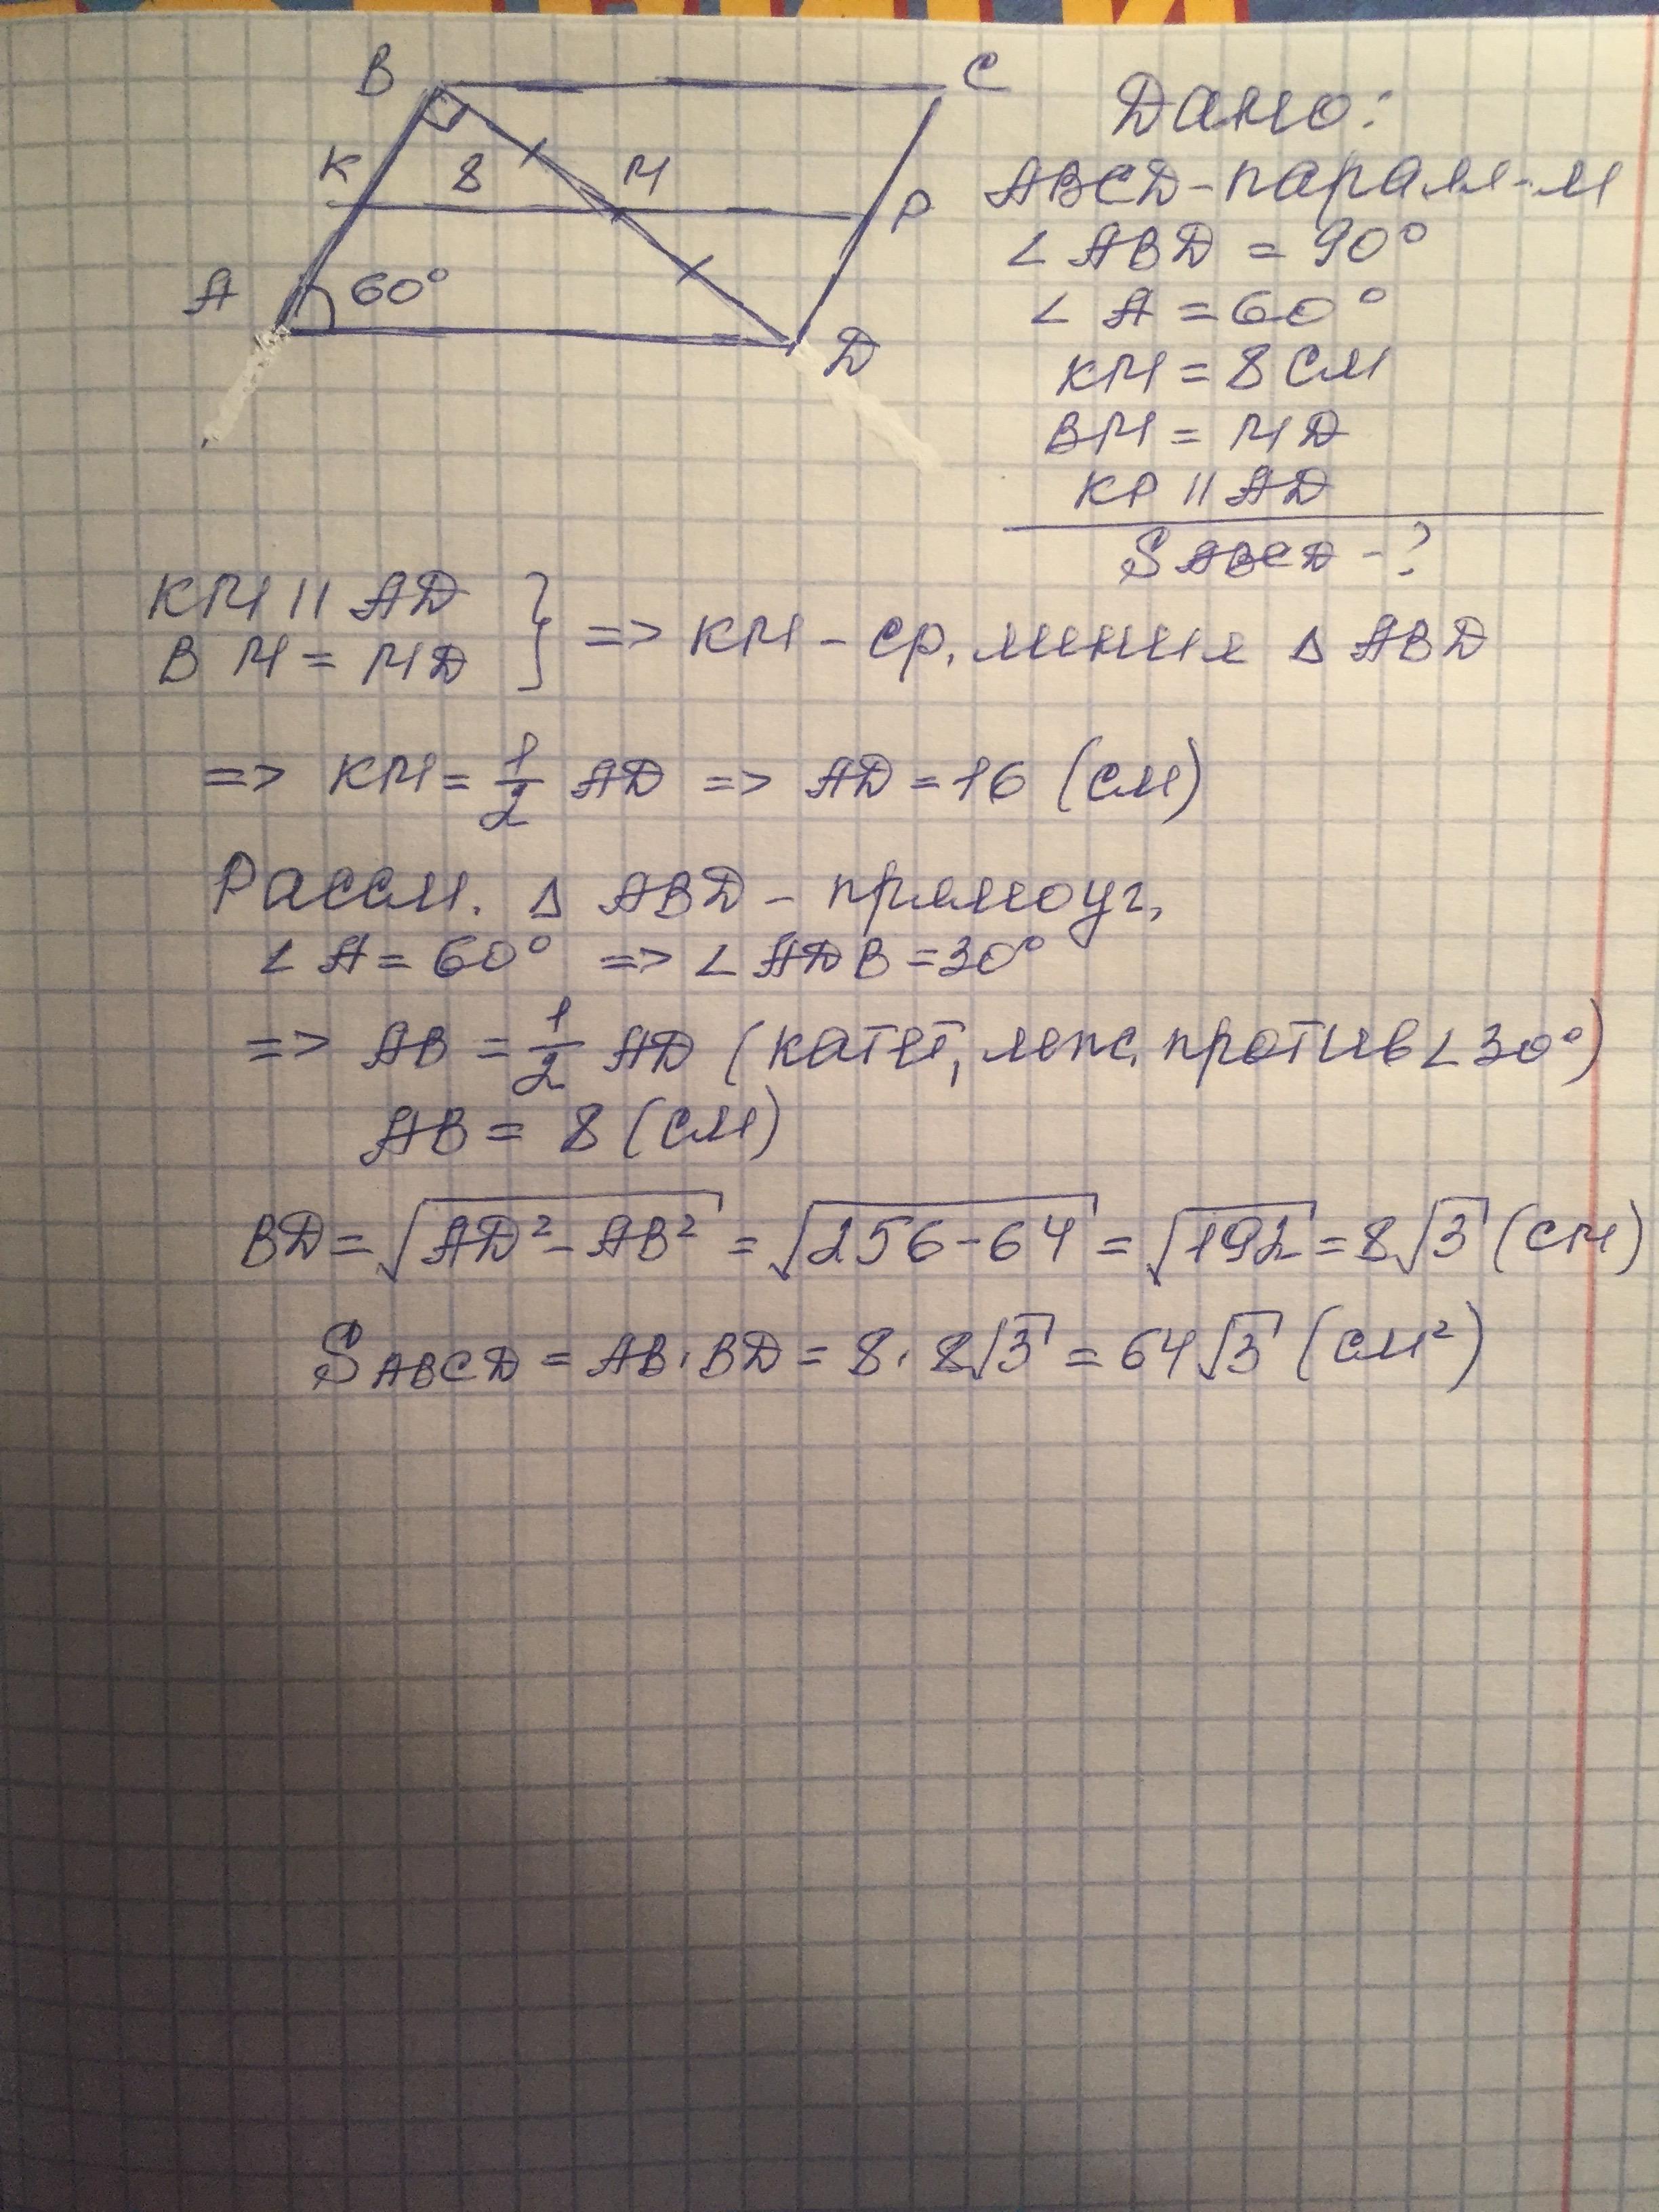 B
C
K
8
M
P
A
60°
D
Дано:
ABCD - парам-м
∠ ABD = 90°
∠ A = 60°
KM = 8 см
BM = MD
KP || AD
S ABCD - ?
KM || AD
BM = MD } => KM - ср. линия Δ ABD
=> KM = 1/2 AD => AD = 16 (см)
Рассм. Δ ABD - прямоуг,
∠ A = 60° => ∠ ADB = 30°
=> AB = 1/2 AD (катет, леж. против ∠ 30°)
AB = 8 (см)
BD = √(AD² - AB²) = √(256 - 64) = √192 = 8√3 (см)
S ABCD = AB · BD = 8 · 8√3 = 64√3 (см²)